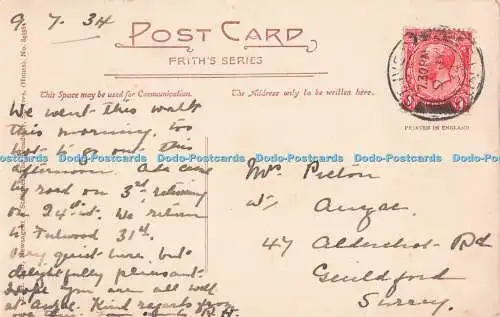 9. 7. 34
POST CARD
FRITH'S SERIES
This Space may be used for Communication.
The Address only to be written here.
PRINTED IN ENGLAND
We went this walk
this morning, too
hot to go out this
afternoon.
by road on 3rd, returning
on 24th. We return
to Fulwood 31st.
Very quiet here, but
delightfully pleasant.
Hope you are all well
at Anzac. Kind regards from
Mrs Picton
Anzac
47 Aldershot Rd
Guildford
Surrey.
Dodo-Postcards Dodo-Postcards Dodo-Postcards Dodo-Postcards Dodo-Postcards